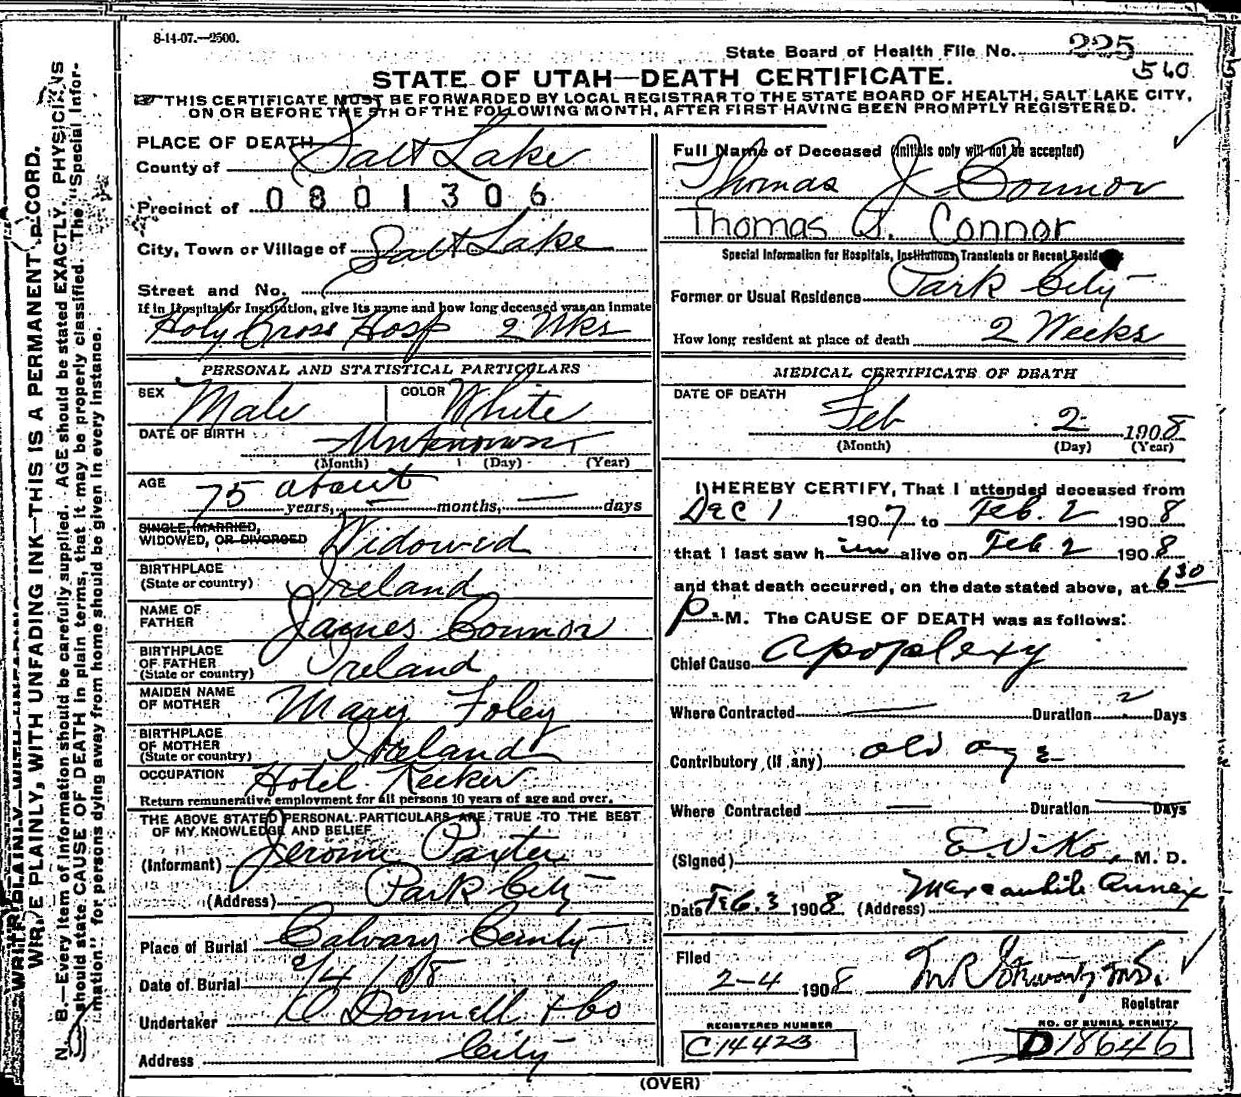 8-14-07.—2500.
State Board of Health File No. 225
560
STATE OF UTAH—DEATH CERTIFICATE.
THIS CERTIFICATE MUST BE FORWARDED BY LOCAL REGISTRAR TO THE STATE BOARD OF HEALTH, SALT LAKE CITY,
ON OR BEFORE THE 5TH OF THE FOLLOWING MONTH, AFTER FIRST HAVING BEEN PROMPTLY REGISTERED.
WRITE PLAINLY, WITH UNFADING INK—THIS IS A PERMANENT RECORD.
N. B.—Every item of information should be carefully supplied. AGE should be stated EXACTLY. PHYSICIANS
should state CAUSE OF DEATH in plain terms, that it may be properly classified. The "Special Infor-
mation" for persons dying away from home should be given in every instance.
PLACE OF DEATH
County of Salt Lake
Precinct of 0801306
City, Town or Village of Salt Lake
Street and No.
If in Hospital or Institution, give its name and how long deceased was an inmate
Holy Cross Hosp 2 Wks
PERSONAL AND STATISTICAL PARTICULARS
SEX Male COLOR White
DATE OF BIRTH Unknown
(Month) (Day) (Year)
AGE 75 about years, — months, — days
SINGLE, MARRIED,
WIDOWED, OR DIVORCED Widowed
BIRTHPLACE
(State or country) Ireland
NAME OF
FATHER James Connor
BIRTHPLACE
OF FATHER
(State or country) Ireland
MAIDEN NAME
OF MOTHER Mary Foley
BIRTHPLACE
OF MOTHER
(State or country) Ireland
OCCUPATION Hotel Keeker
Return remunerative employment for all persons 10 years of age and over.
THE ABOVE STATED PERSONAL PARTICULARS ARE TRUE TO THE BEST
OF MY KNOWLEDGE AND BELIEF
(Informant) Jerome Paxter
(Address) Park City
Place of Burial Calvary Cemty
Date of Burial 2/4/08
Undertaker O Donnell & Co
Address City
Full Name of Deceased (Initials only will not be accepted)
Thomas J. Connor
Thomas J. Connor
Special Information for Hospitals, Institutions, Transients or Recent Residents
Former or Usual Residence Park City
How long resident at place of death 2 Weeks
MEDICAL CERTIFICATE OF DEATH
DATE OF DEATH
Feb 2 1908
(Month) (Day) (Year)
I HEREBY CERTIFY, That I attended deceased from
Dec 1 1907 to Feb. 2 1908
that I last saw him alive on Feb 2 1908
and that death occurred, on the date stated above, at 6 30
P. M. The CAUSE OF DEATH was as follows:
Chief Cause Apoplexy
Where Contracted — Duration 2 Days
Contributory (if any) old age
Where Contracted — Duration — Days
(Signed) E. Viko, M. D.
Date Feb. 3 1908 (Address) Mercantile Annex
Filed
2-4 1908 M R Stewart M.D.
Registrar
REGISTERED NUMBER
C14423
NO. OF BURIAL PERMIT
D18646
(OVER)